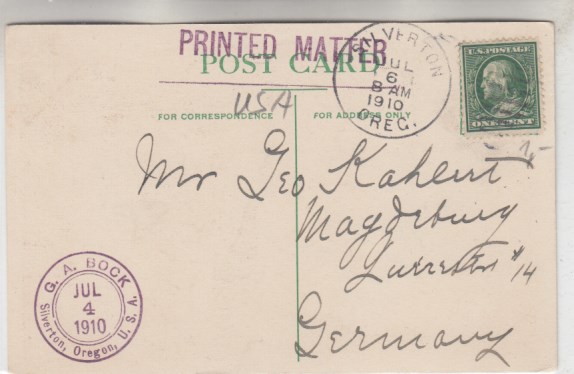 PRINTED MATTER
POST CARD
SILVERTON
JUL
6
8 AM
1910
OREG.
U.S. POSTAGE
ONE CENT
USA
FOR CORRESPONDENCE
FOR ADDRESS ONLY
Mr Geo Kahlert
Magdeburg
#14
Germany
G. A. BOCK
JUL
4
1910
Silverton, Oregon, U.S.A.